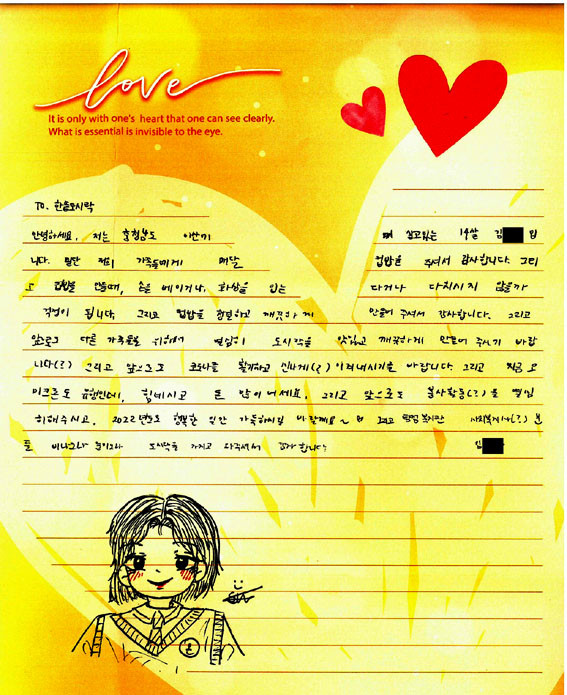 love
It is only with one's heart that one can see clearly.
What is essential is invisible to the eye.
TO. 한솔도시락
안녕하세요, 저는 충청남도 아산시 에 살고있는 14살 김 입
니다. 일단 저희 가족들에게 매달 컵밥을 주셔서 감사합니다. 그리
고 컵밥을 만들때, 손을 베이거나, 화상을 입는 다거나 다치시지 않을까
걱정이 됩니다. 그리고 컵밥을 깨끗하게 만들어 주셔서 감사합니다. 그리고
앞으로도 다른 가족들을 위해서 열심히 도시락을 맛있고 깨끗하게 만들어 주시기 바랍
니다(?) 그리고 앞으로도 코로나를 신나게(?) 이겨내시기를 바랍니다. 그리고 지금 오
미크론도 유행인데, 힘내시고 돈 많이 버세요. 그리고 앞으로도 봉사활동(?)을 열심
히해주시고, 2022년도도 행복한 일만 가득하시길 바랄께요~ 그리고 복지관 사회복지사(?) 분
들 비가오나 눈이오나 도시락을 가지고 와주셔서 감사합니다. 김